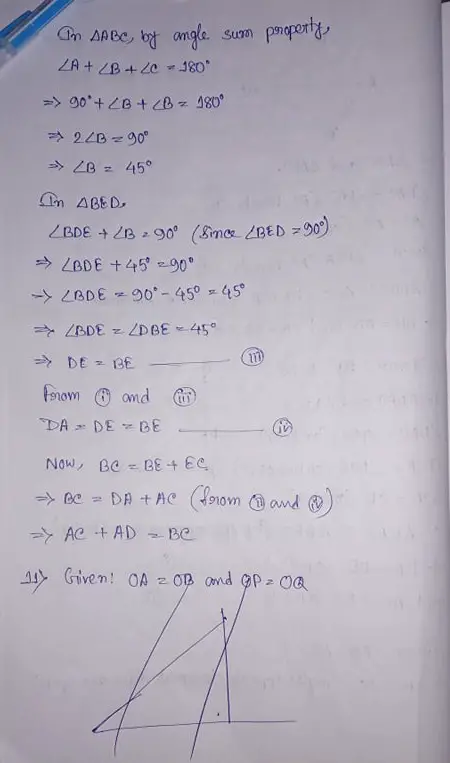 In ΔABC, by angle sum property,
∠A + ∠B + ∠C = 180°
=> 90° + ∠B + ∠B = 180°
=> 2∠B = 90°
=> ∠B = 45°
In ΔBED,
∠BDE + ∠B = 90° (Since ∠BED = 90°)
=> ∠BDE + 45° = 90°
=> ∠BDE = 90° - 45° = 45°
=> ∠BDE = ∠DBE = 45°
=> DE = BE ——— (iii)
From (i) and (iii)
DA = DE = BE ——— (iv)
Now, BC = BE + EC
=> BC = DA + AC (from (ii) and (iv))
=> AC + AD = BC
11> Given: OA = OB and OP = OQ